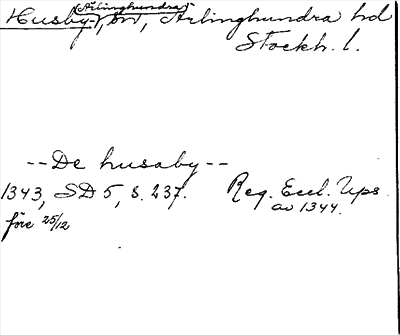 Husby-Ärlinghundra, sn, Ärlinghundra hd
Stockh. l.
--De husaby--
1343, SD 5, s. 237. Reg. Eccl. Ups
före 25/12 av 1344.